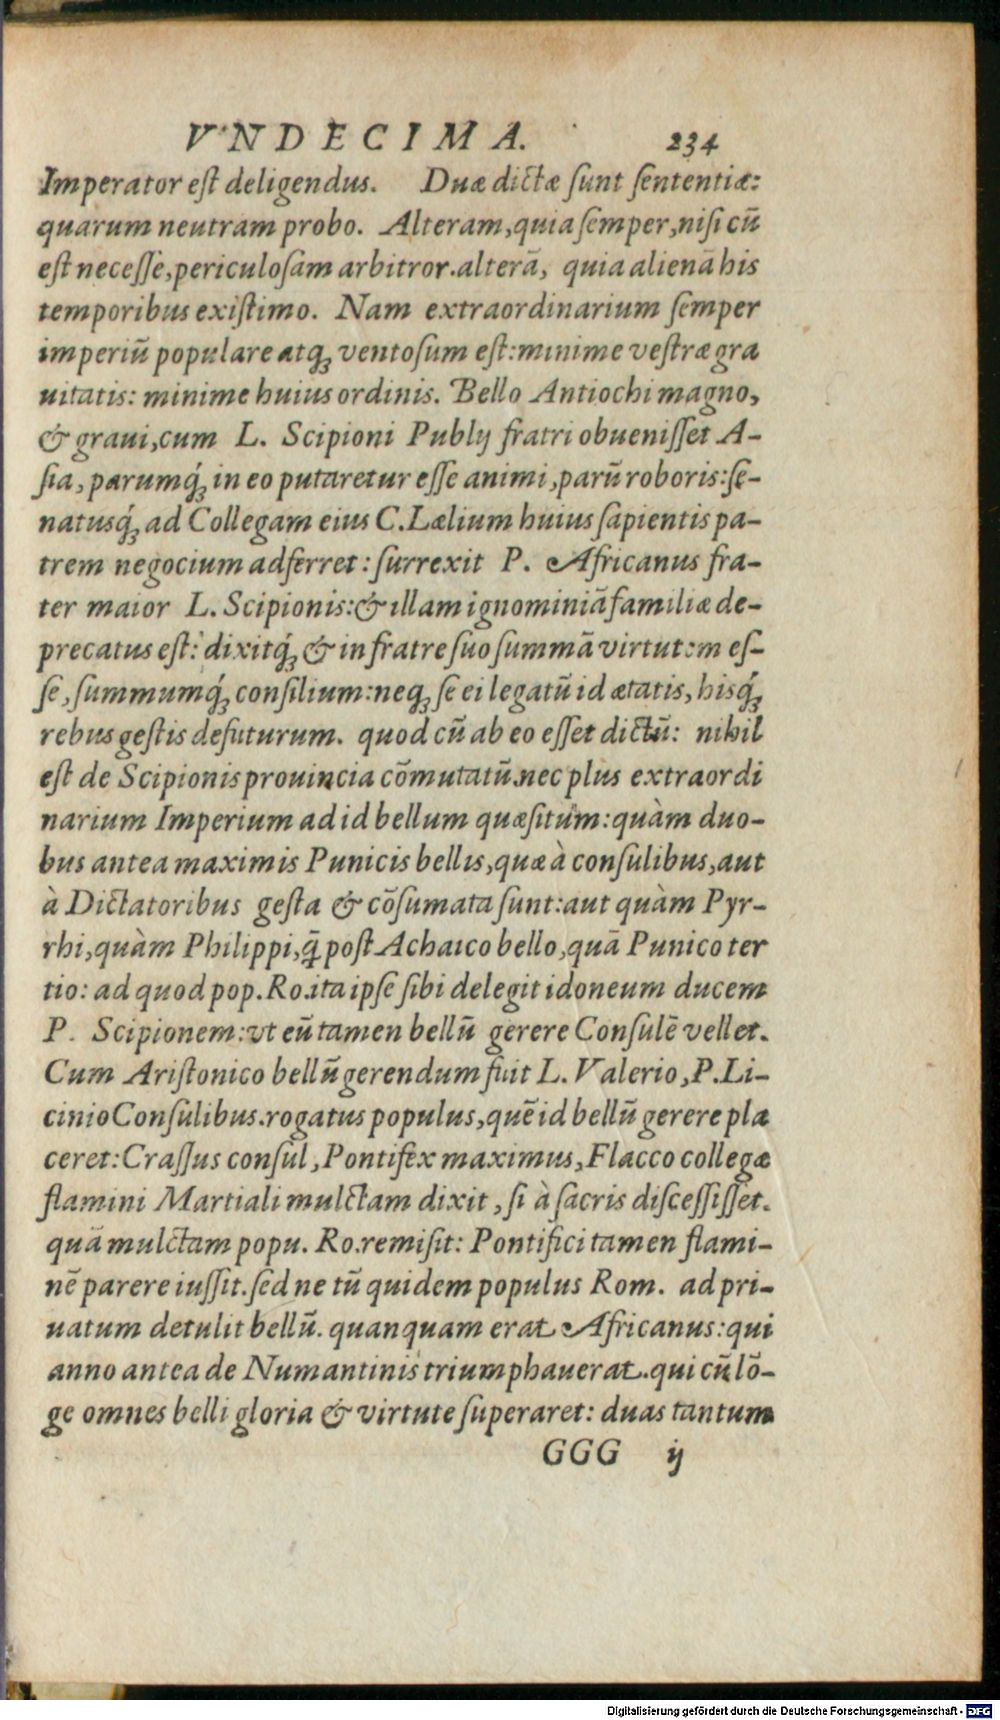 VNDECIMA. 234
Imperator eſt deligendus. Duæ dictæ ſunt ſententiæ:
quarum neutram probo. Alteram, quia ſemper, niſi cū
eſt neceſſe, periculoſam arbitror. alterā, quia alienā his
temporibus exiſtimo. Nam extraordinarium ſemper
imperiū populare atqꝫ ventoſum eſt: minime veſtræ gra
uitatis: minime huius ordinis. Bello Antiochi magno,
& graui, cum L. Scipioni Publij fratri obueniſſet A-
ſia, parumq́ꝫ in eo putaretur eſſe animi, parū roboris: ſe-
natusq́ꝫ ad Collegam eius C. Lælium huius ſapientis pa-
trem negocium adferret: ſurrexit P. Africanus fra-
ter maior L. Scipionis: & illam ignominiā familiæ de-
precatus eſt: dixitq́ꝫ & in fratre ſuo ſummā virtutem eſ-
ſe, ſummumq́ꝫ conſilium: neqꝫ ſe ei legatū id ætatis, hisq́ꝫ
rebus geſtis defuturum. quod cū ab eo eſſet dictū: nihil
eſt de Scipionis prouincia cōmutatū. nec plus extraordi
narium Imperium ad id bellum quæſitum: quàm duo-
bus antea maximis Punicis bellis, quæ à conſulibus, aut
à Dictatoribus geſta & cōſumata ſunt: aut quàm Pyr-
rhi, quàm Philippi, q̄ꝫ poſt Achaico bello, quā Punico ter
tio: ad quod pop. Ro. ita ipſe ſibi delegit idoneum ducem
P. Scipionem: vt eū tamen bellū gerere Conſulē vellet.
Cum Ariſtonico bellū gerendum fuit L. Valerio, P. Li-
cinio Conſulibus. rogatus populus, quē id bellū gerere pla
ceret: Craſſus conſul, Pontifex maximus, Flacco collegæ
flamini Martiali mulctam dixit, ſi à ſacris diſceſſiſſet.
quā mulctam popu. Ro. remiſit: Pontifici tamen flami-
nē parere iuſſit. ſed ne tū quidem populus Rom. ad pri-
uatum detulit bellū. quanquam erat Africanus: qui
anno antea de Numantinis triumphauerat. qui cū lō-
ge omnes belli gloria & virtute ſuperaret: duas tantum
GGG ij
Digitalisierung gefördert durch die Deutsche Forschungsgemeinschaft - DFG